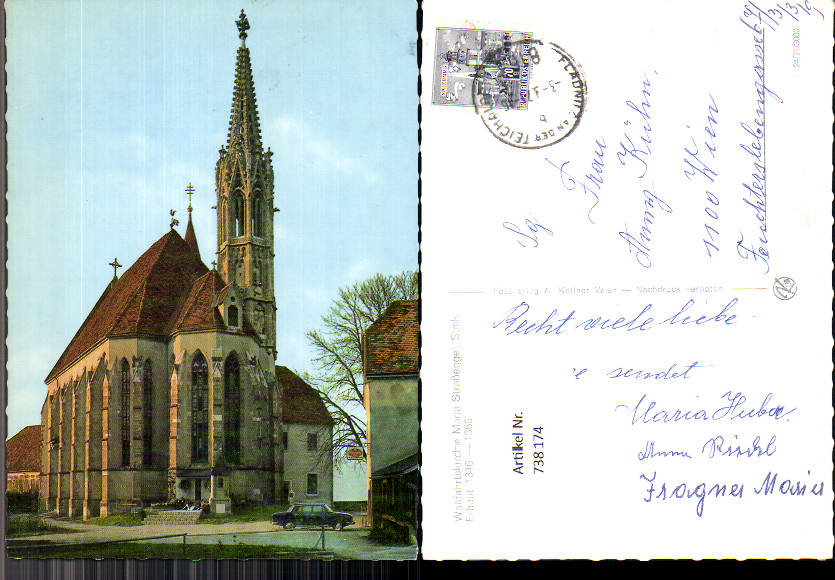 REPUBLIK ÖSTERREICH
FLADNITZ AN DER TEICHALPE
Sg
Frau
Anny Kühn.
1100 Wien
24/71/3/3/
Fotoverlag A. Kellner Wien — Nachdruck verboten
Wallfahrtskirche Maria Straßengel, Stmk.
Erbaut 1346 — 1366
Artikel Nr.
738174
Recht viele liebe
sendet
Maria Huber.
Anna Riedl
Fragner Maria